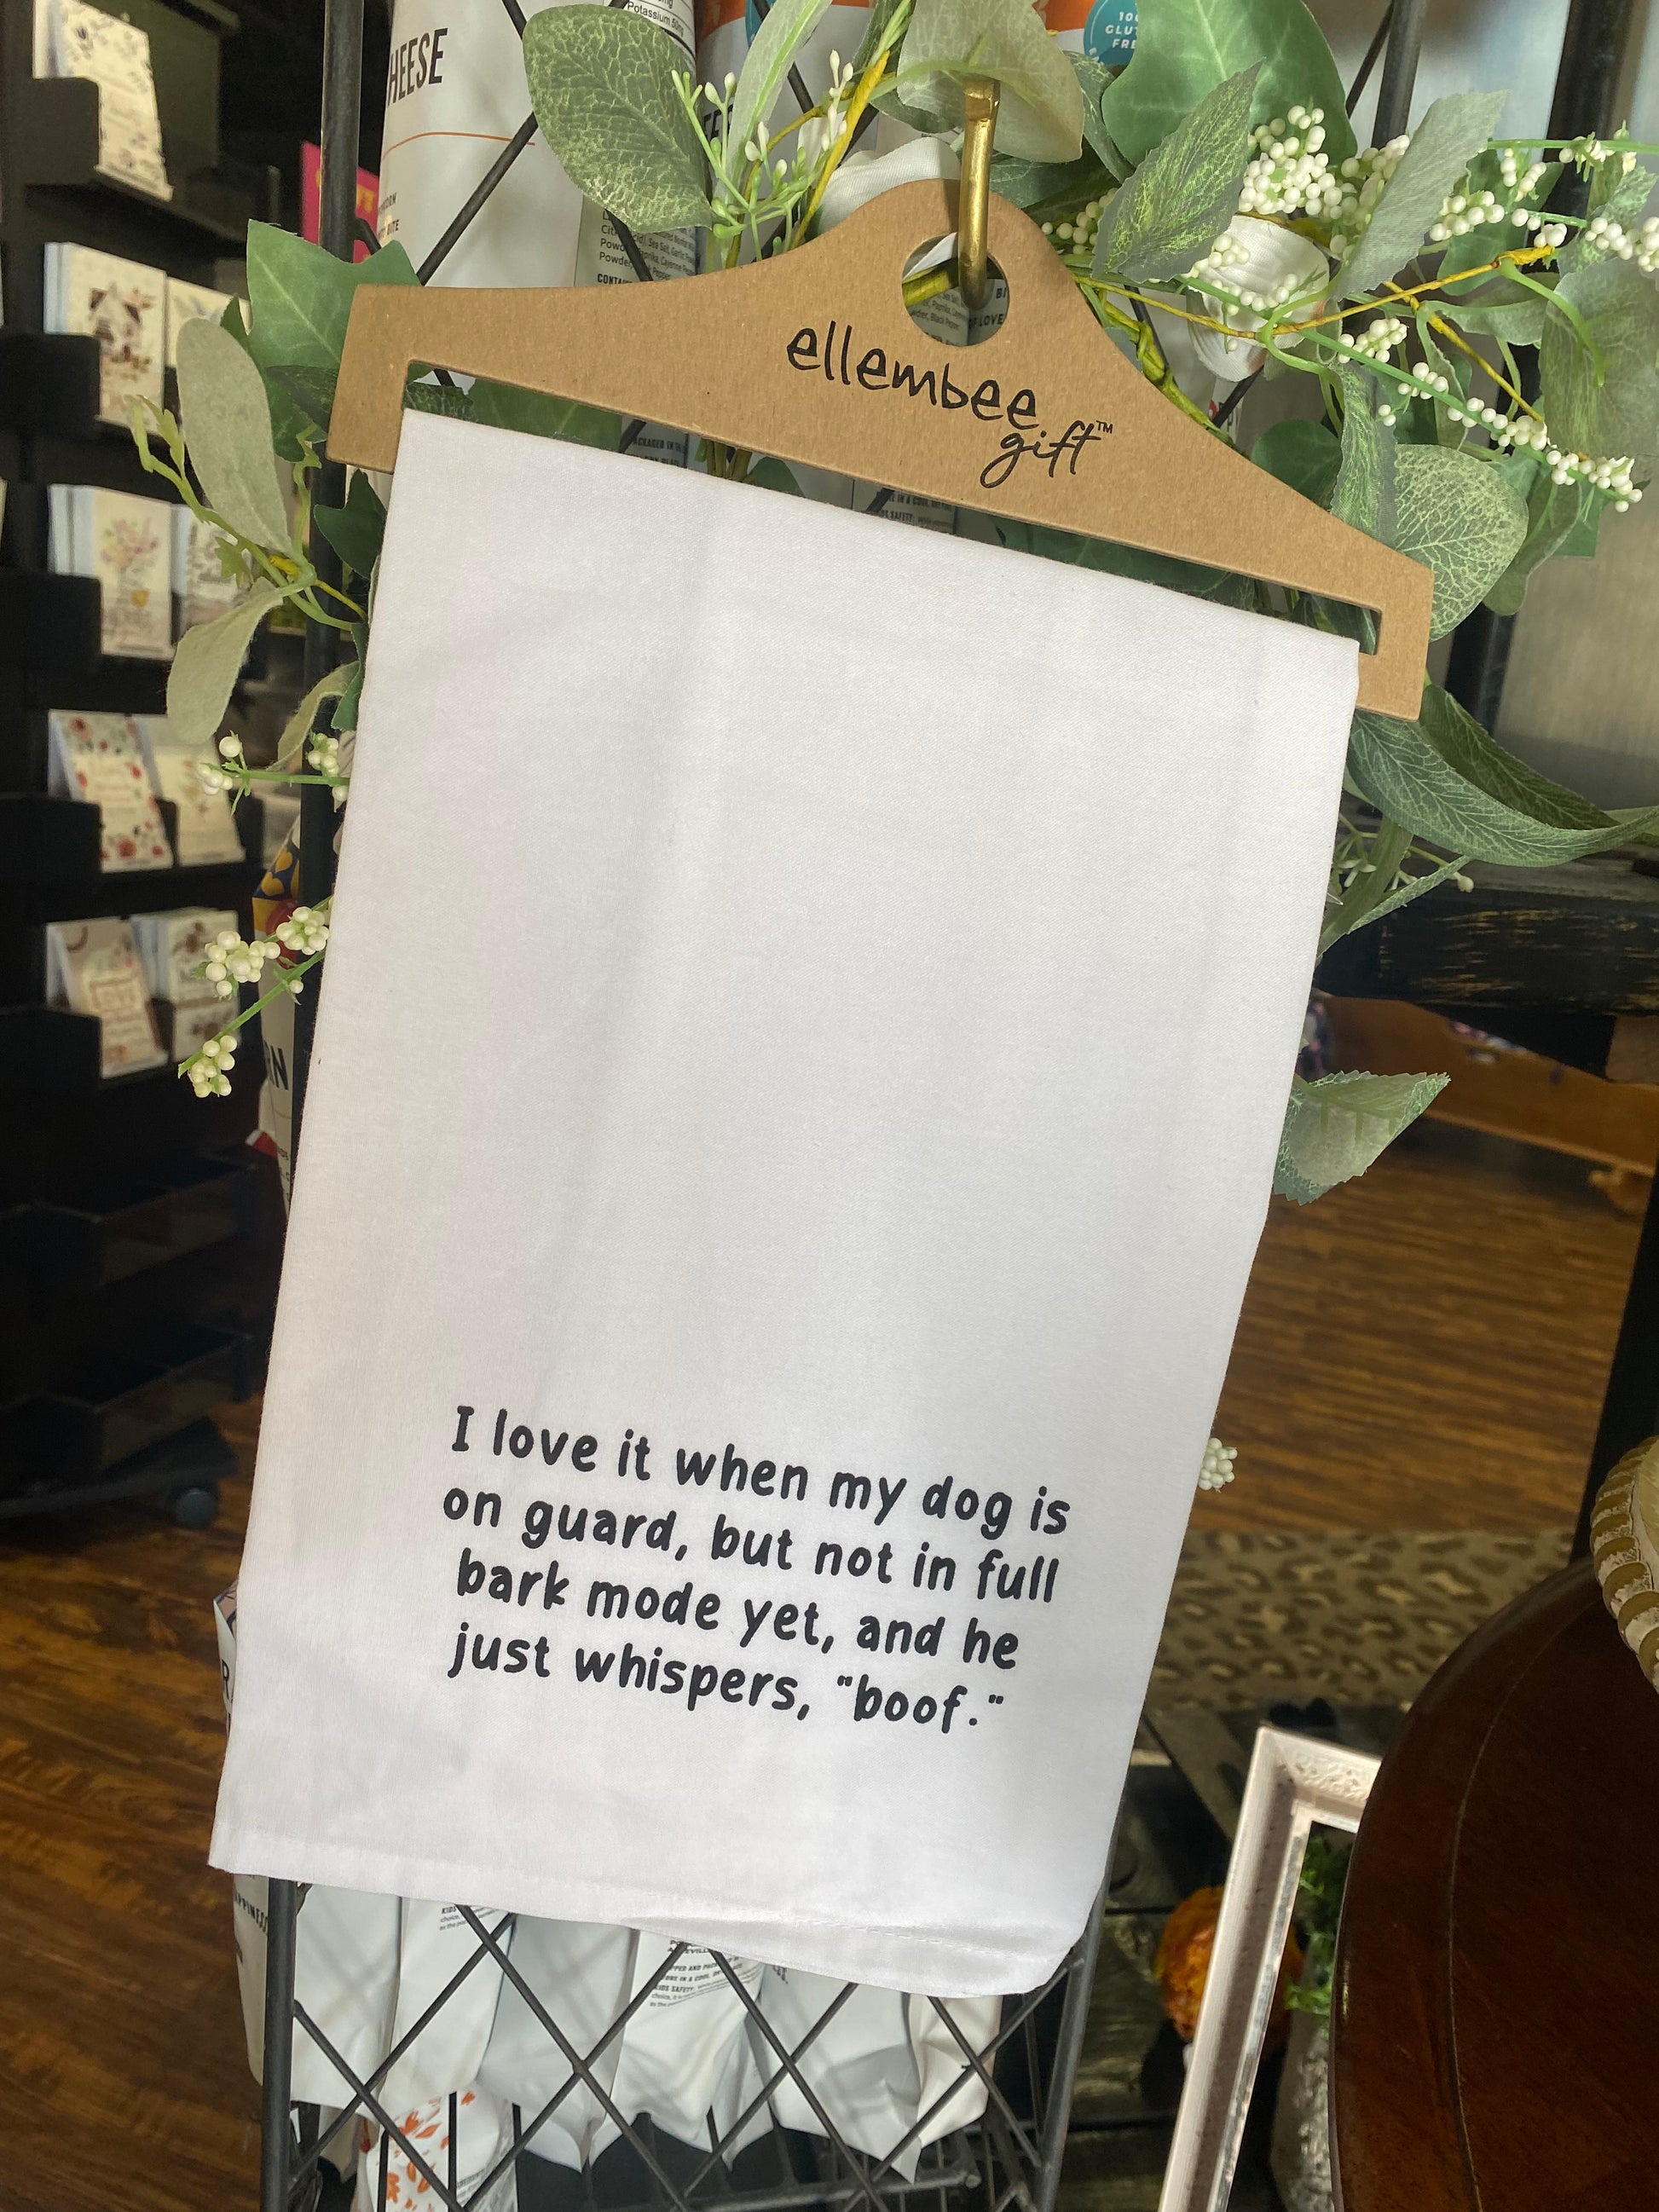 HEESE
Potassium 50mg
ellembee
gift™
I love it when my dog is
on guard, but not in full
bark mode yet, and he
just whispers, "boof."